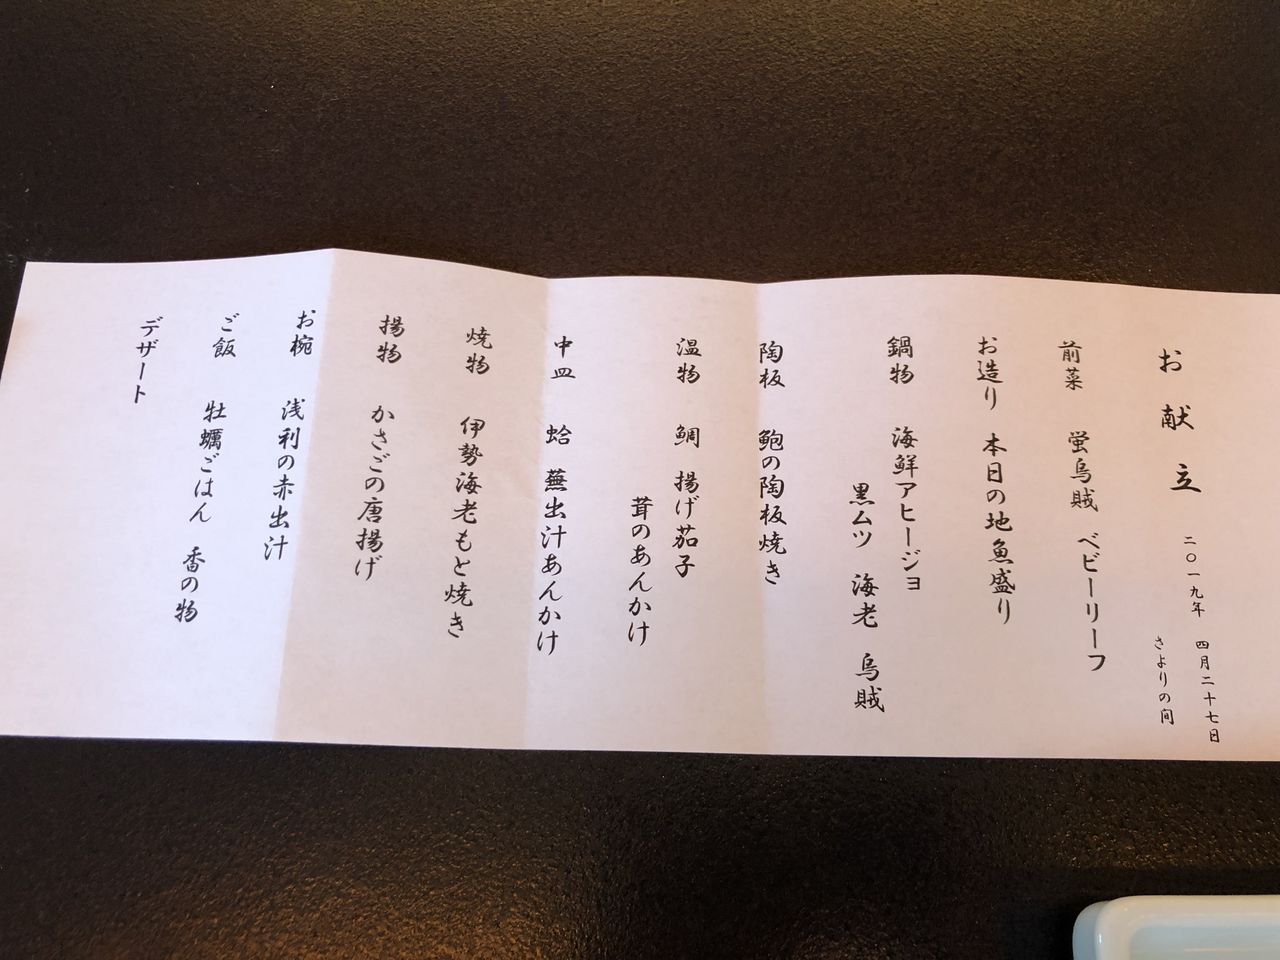 お献立
二〇一九年 四月二十七日
さよりの間
前菜 蛍烏賊 ベビーリーフ
お造り 本日の地魚盛り
鍋物 海鮮アヒージョ
黒ムツ 海老 烏賊
陶板 鮑の陶板焼き
温物 鯛 揚げ茄子
茸のあんかけ
中皿 蛤 蕪出汁あんかけ
焼物 伊勢海老もと焼き
揚物 かさごの唐揚げ
お椀 浅利の赤出汁
ご飯 牡蠣ごはん 香の物
デザート